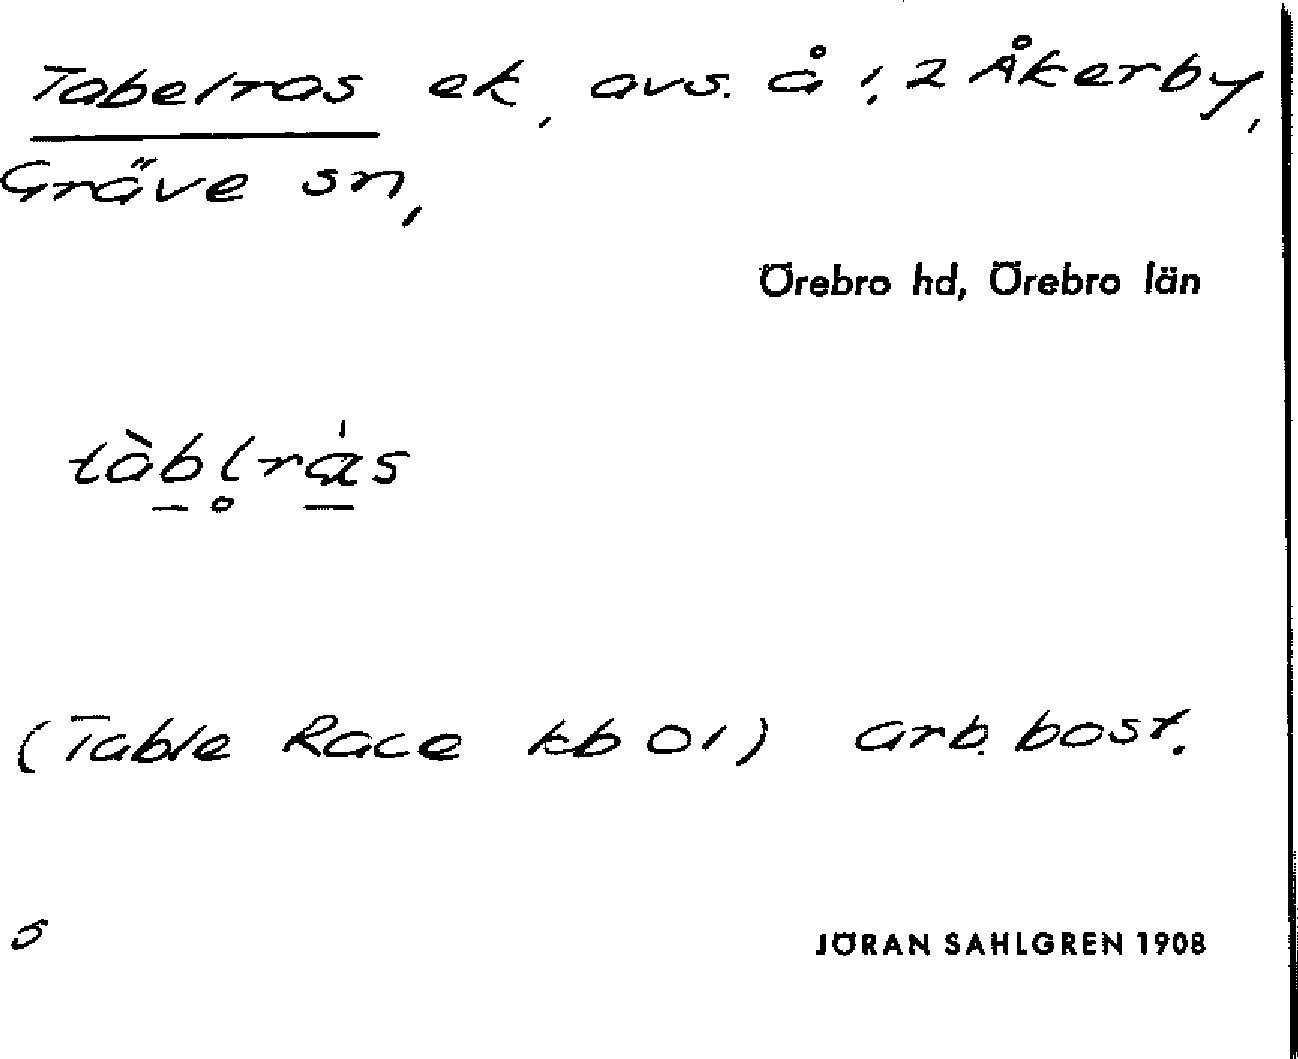 Tabelras ek, avs. å 1, 2 Åkerby,
Gräve sn,
Örebro hd, Örebro län
(Table Race kb 01) arb. bost.
JÖRAN SAHLGREN 1908